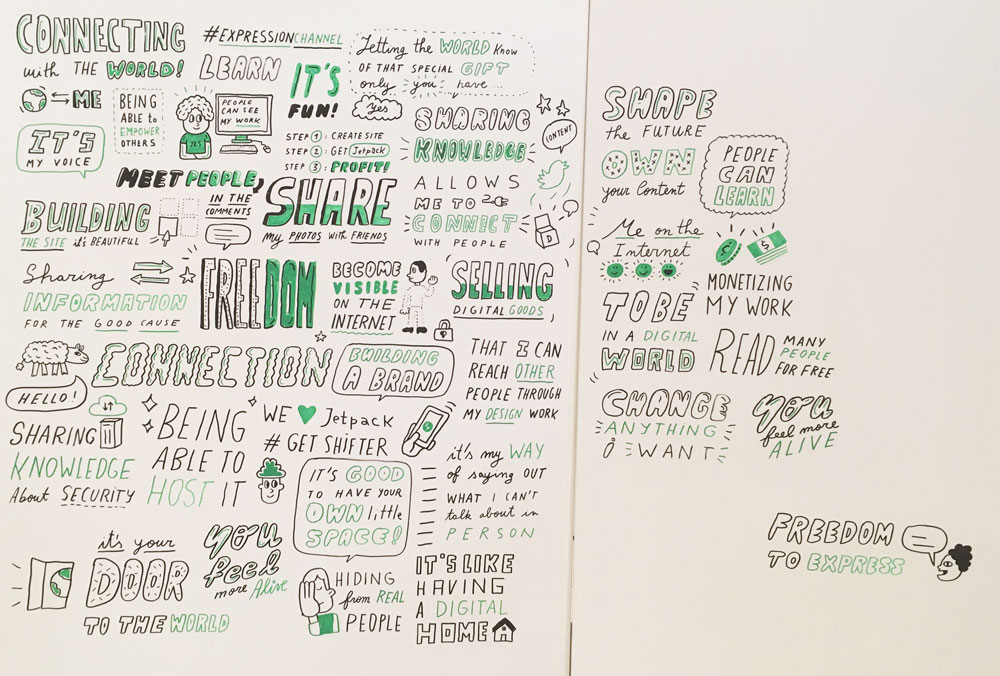 CONNECTING
with THE WORLD!
ME
IT'S
MY VOICE
BEING
ABLE to
EMPOWER
OTHERS
#EXPRESSIONCHANNEL
LEARN
YES
PEOPLE
CAN SEE
MY WORK
IT'S
FUN!
STEP 1: CREATE SITE
STEP 2: GET Jetpack
STEP 3: PROFIT!
Letting the WORLD Know
OF THAT SPECIAL GIFT
only you have...
Yes
SHARING
KNOWLEDGE
ALLOWS
ME TO
CONNECT
WITH PEOPLE
CONTENT
D
MEET PEOPLE,
IN THE
COMMENTS
BUILDING
THE SITE it's BEAUTIFUL
SHARE
my PHOTOS with FRIENDS
Sharing
INFORMATION
FOR THE GOOD CAUSE
FREEDOM
BECOME
VISIBLE
ON THE
INTERNET
SELLING
DIGITAL GOODS
CONNECTION
HELLO!
BUILDING
A BRAND
THAT I CAN
REACH OTHER
PEOPLE THROUGH
MY DESIGN WORK
SHARING
KNOWLEDGE
About SECURITY
BEING
ABLE TO
HOST IT
WE Jetpack
# GET SHIFTER
IT'S GOOD
TO HAVE YOUR
OWN little
SPACE!
it's my WAY
of saying OUT
WHAT I CAN'T
talk about in
PERSON
it's your
DOOR
TO THE WORLD
you
feel
more Alive
HIDING
from REAL
PEOPLE
IT'S LIKE
HAVING
A DIGITAL
HOME
SHAPE
the FUTURE
OWN
your Content
PEOPLE
CAN
LEARN
Me on the
Internet
$
MONETIZING
MY WORK
TO BE
IN A DIGITAL
WORLD
READ MANY
PEOPLE
FOR FREE
CHANGE
ANYTHING
i WANT
you
feel more
ALIVE
FREEDOM
TO EXPRESS